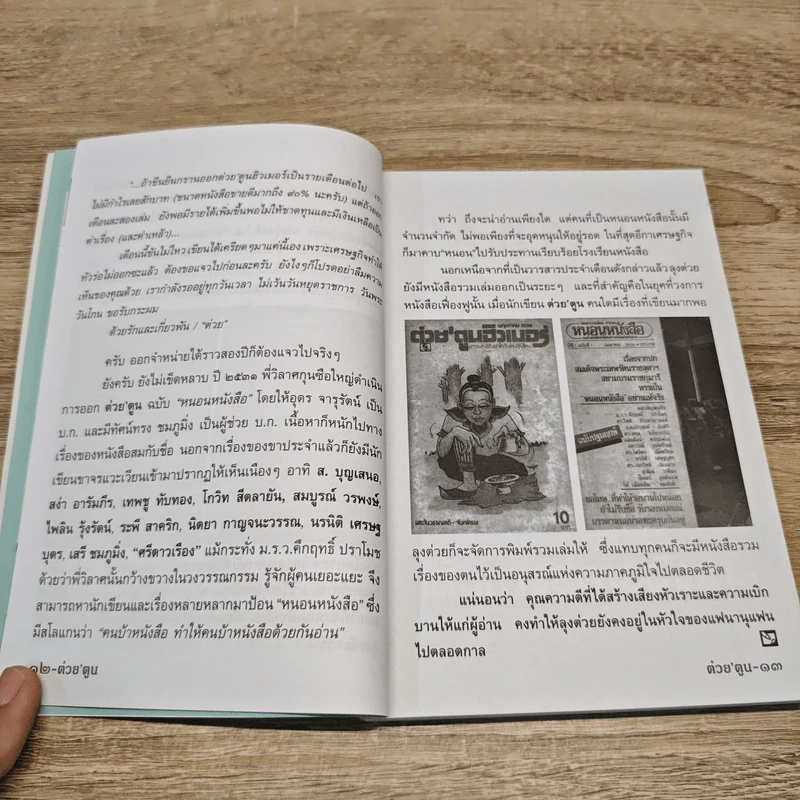 "...ถ้าขืนยืนกรานออกต่วย'ตูนฮิวเมอร์เป็นรายเดือนต่อไป เรา
ไม่มีกำไรเลยสักบาท (ขนาดหนังสือขายดีมากถึง ๙๐% นะครับ) แต่ถ้าออก
เดือนละสองเล่ม ยังพอมีรายได้เพิ่มขึ้นพอไม่ให้ขาดทุนและมีเงินเหลือเป็น
ค่าเรื่อง (และค่าเหล้า)...
เดือนนี้ชันไม่ไหว เขียนได้เครียดๆ มาแค่นี้เอง เพราะเศรษฐกิจทำให้
หัวร่อไม่ออกซะแล้ว ต้องขอแจวไปก่อนละครับ ยังไงๆ ก็โปรดอย่าลืมความ
เห็นของคุณด้วย เรากำลังรออยู่ทุกวันเวลา ไม่เว้นวันหยุดราชการ วันพระ
วันโกน ขอรับกระผม
ด้วยรักและเกี่ยวพัน / "ต่วย"
ครับ ออกจำหน่ายได้ราวสองปีก็ต้องแจวไปจริงๆ
ยังครับ ยังไม่เข็ดหลาบ ปี ๒๕๓๑ พี่วาศกุนซือใหญ่ดำเนิน
การออก ต่วย'ตูน ฉบับ "หนอนหนังสือ" โดยให้อุดร จารุรัตน์ เป็น
บ.ก. และมีทัศน์ทรง ชมภูมิ่ง เป็นผู้ช่วย บ.ก. เนื้อหาก็หนักไปทาง
เรื่องของหนังสือสมกับชื่อ นอกจากเรื่องของขาประจำแล้วก็ยังมีนัก
เขียนขาจรแวะเวียนเข้ามาปรากฏให้เห็นเนืองๆ อาทิ ส. บุญเสนอ,
สง่า อารัมภีร, เทพชู ทับทอง, โกวิท สีตลายัน, สมบูรณ์ วรพงษ์,
ไพลิน รุ้งรัตน์, ระพี สาคริก, นิตยา กาญจนะวรรณ, นรนิติ เศรษฐ
บุตร, เสรี ชมภูมิ่ง, "ศรีดาวเรือง" แม้กระทั่ง ม.ร.ว.คึกฤทธิ์ ปราโมช
ด้วยว่าพี่วิลาศนั้นกว้างขวางในวงวรรณกรรม รู้จักผู้คนเยอะแยะ จึง
สามารถหานักเขียนและเรื่องหลายหลากมาป้อน "หนอนหนังสือ" ซึ่ง
มีสโลแกนว่า "คนบ้าหนังสือ ทำให้คนบ้าหนังสือด้วยกันอ่าน"
๑๒-ต่วย'ตูน
ทว่า ถึงจะน่าอ่านเพียงใด แต่คนที่เป็นหนอนหนังสือนั้นมี
จำนวนจำกัด ไม่พอเพียงที่จะอุดหนุนให้อยู่รอด ในที่สุดอีกาเศรษฐกิจ
ก็มาคาบ"หนอน"ไปรับประทานเรียบร้อยโรงเรียนหนังสือ
นอกเหนือจากที่เป็นวารสารประจำเดือนดังกล่าวแล้ว ลุงต่วย
ยังมีหนังสือรวมเล่มออกเป็นระยะๆ และที่สำคัญคือในยุคที่วงการ
หนังสือเฟื่องฟูนั้น เมื่อนักเขียน ต่วย'ตูน คนใดมีเรื่องที่เขียนมากพอ
ต่วย'ตูนฮิวเมอร์
เสาในวรรณคดี-จันทร์แรม
10
บาท
หนอนหนังสือ
เรื่องจากปก
สมเด็จพระเทพรัตนราชสุดาฯ
สยามบรมราชกุมารี
ทรงเป็น
'หนอนหนังสือ' อย่างแท้จริง
ฉบับปฐมฤกษ์
ลุงต่วยก็จะจัดการพิมพ์รวมเล่มให้ ซึ่งแทบทุกคนก็จะมีหนังสือรวม
เรื่องของตนไว้เป็นอนุสรณ์แห่งความภาคภูมิใจไปตลอดชีวิต
แน่นอนว่า คุณความดีที่ได้สร้างเสียงหัวเราะและความเบิก
บานให้แก่ผู้อ่าน คงทำให้ลุงต่วยยังคงอยู่ในหัวใจของแฟนานุแฟน
ไปตลอดกาล
ต่วย'ตูน-๑๓